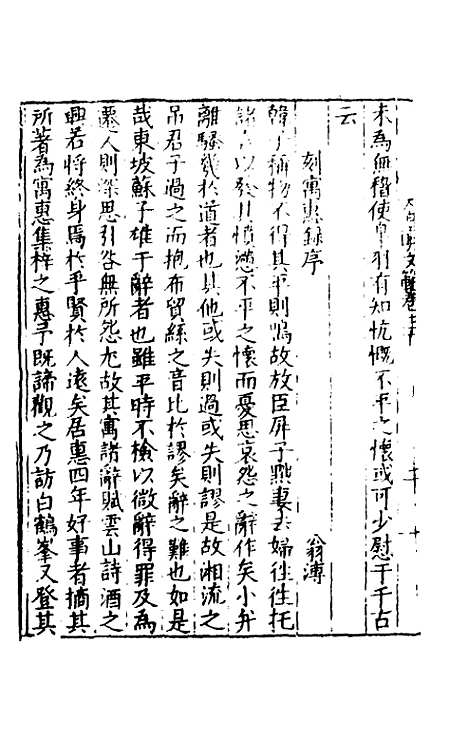 未為無稽使皐羽有知忼慨不平之懷或可少慰于千古
云
刻寓惠錄序
翁溥
韓子稱物不得其平則鳴故放臣屏子黜妻去婦徃徃托
諸言以發其憤懣不平之懷而憂思哀怨之辭作矣小弁
離騷幾於道者也其他或失則過或失則謬是故湘流之
吊君子過之而抱布貿絲之音比於謬矣辭之難也如是
哉東坡蘇子雄于辭者也雖平時不檢以微辭得罪及為
遷人則深思引咎無所怨尤故其寓諸辭賦雲山詩酒之
興若將終身焉於乎賢於人遠矣居惠四年好事者摘其
所著為寓惠集梓之惠予既諦觀之乃訪白鶴峯又登其